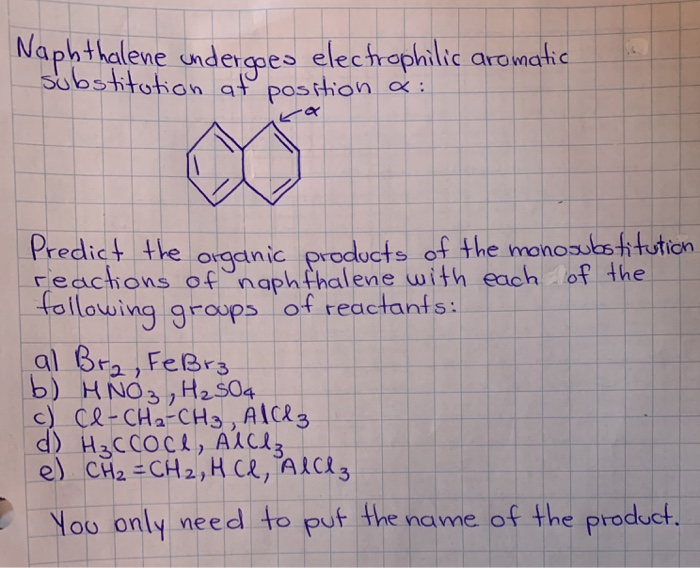 Naphthalene undergoes electrophilic aromatic
substitution at position α:
α
Predict the organic products of the monosubstitution
reactions of naphthalene with each of the
following groups of reactants:
a) Br₂, FeBr₃
b) HNO₃, H₂SO₄
c) Cl-CH₂-CH₃, AlCl₃
d) H₃CCOCl, AlCl₃
e) CH₂=CH₂, HCl, AlCl₃
You only need to put the name of the product.